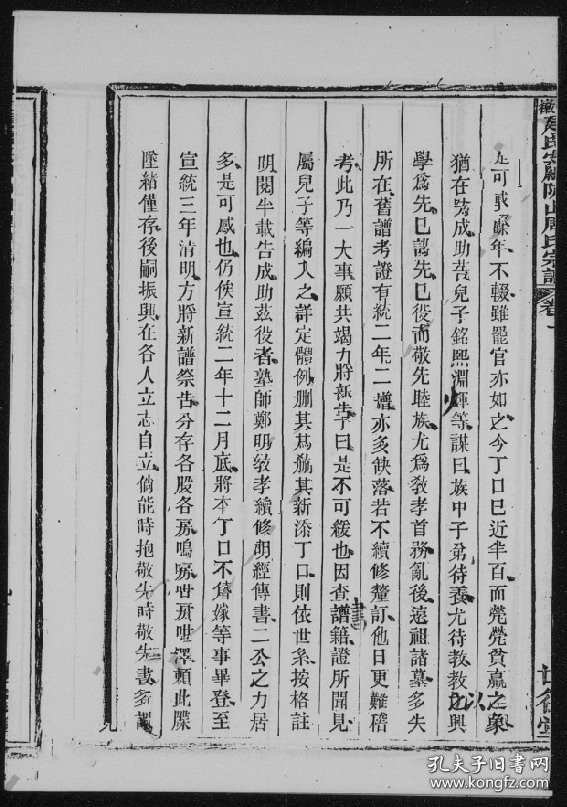 是可或縣年不輟雖罷官亦如之今丁口已近半百而煢煢貧羸之象
猶在勞成助哉兒子銘熙淵輝等謀曰族中子弟待養尤待教教以興
學為先已認先已役而敬先睦族尤為敎孝首務亂後遠祖諸墓多失
所在舊譜考證有統二年二增亦多缺落若不續修釐訂他日更難稽
考此乃一大事願共竭力將祇告予曰是不可緩也因查譜籍證所聞見
屬兒子等編入之詳定體例刪其蕪觚其新添丁口則依世系按格註
明閱半載告成助茲役者塾師鄭明敎孝續修朝經傳書二公之力居
多是可感也仍俟宣統二年十二月底將本丁口不售嫁等事畢登至
宣統三年清明方將新譜祭告分存各股各房嗚
墜緒僅存後嗣振興在各人立志自立倘能時抱敬先時敬失書
周氏宗譜 卷一
孔夫子旧书网
www.kongfz.com